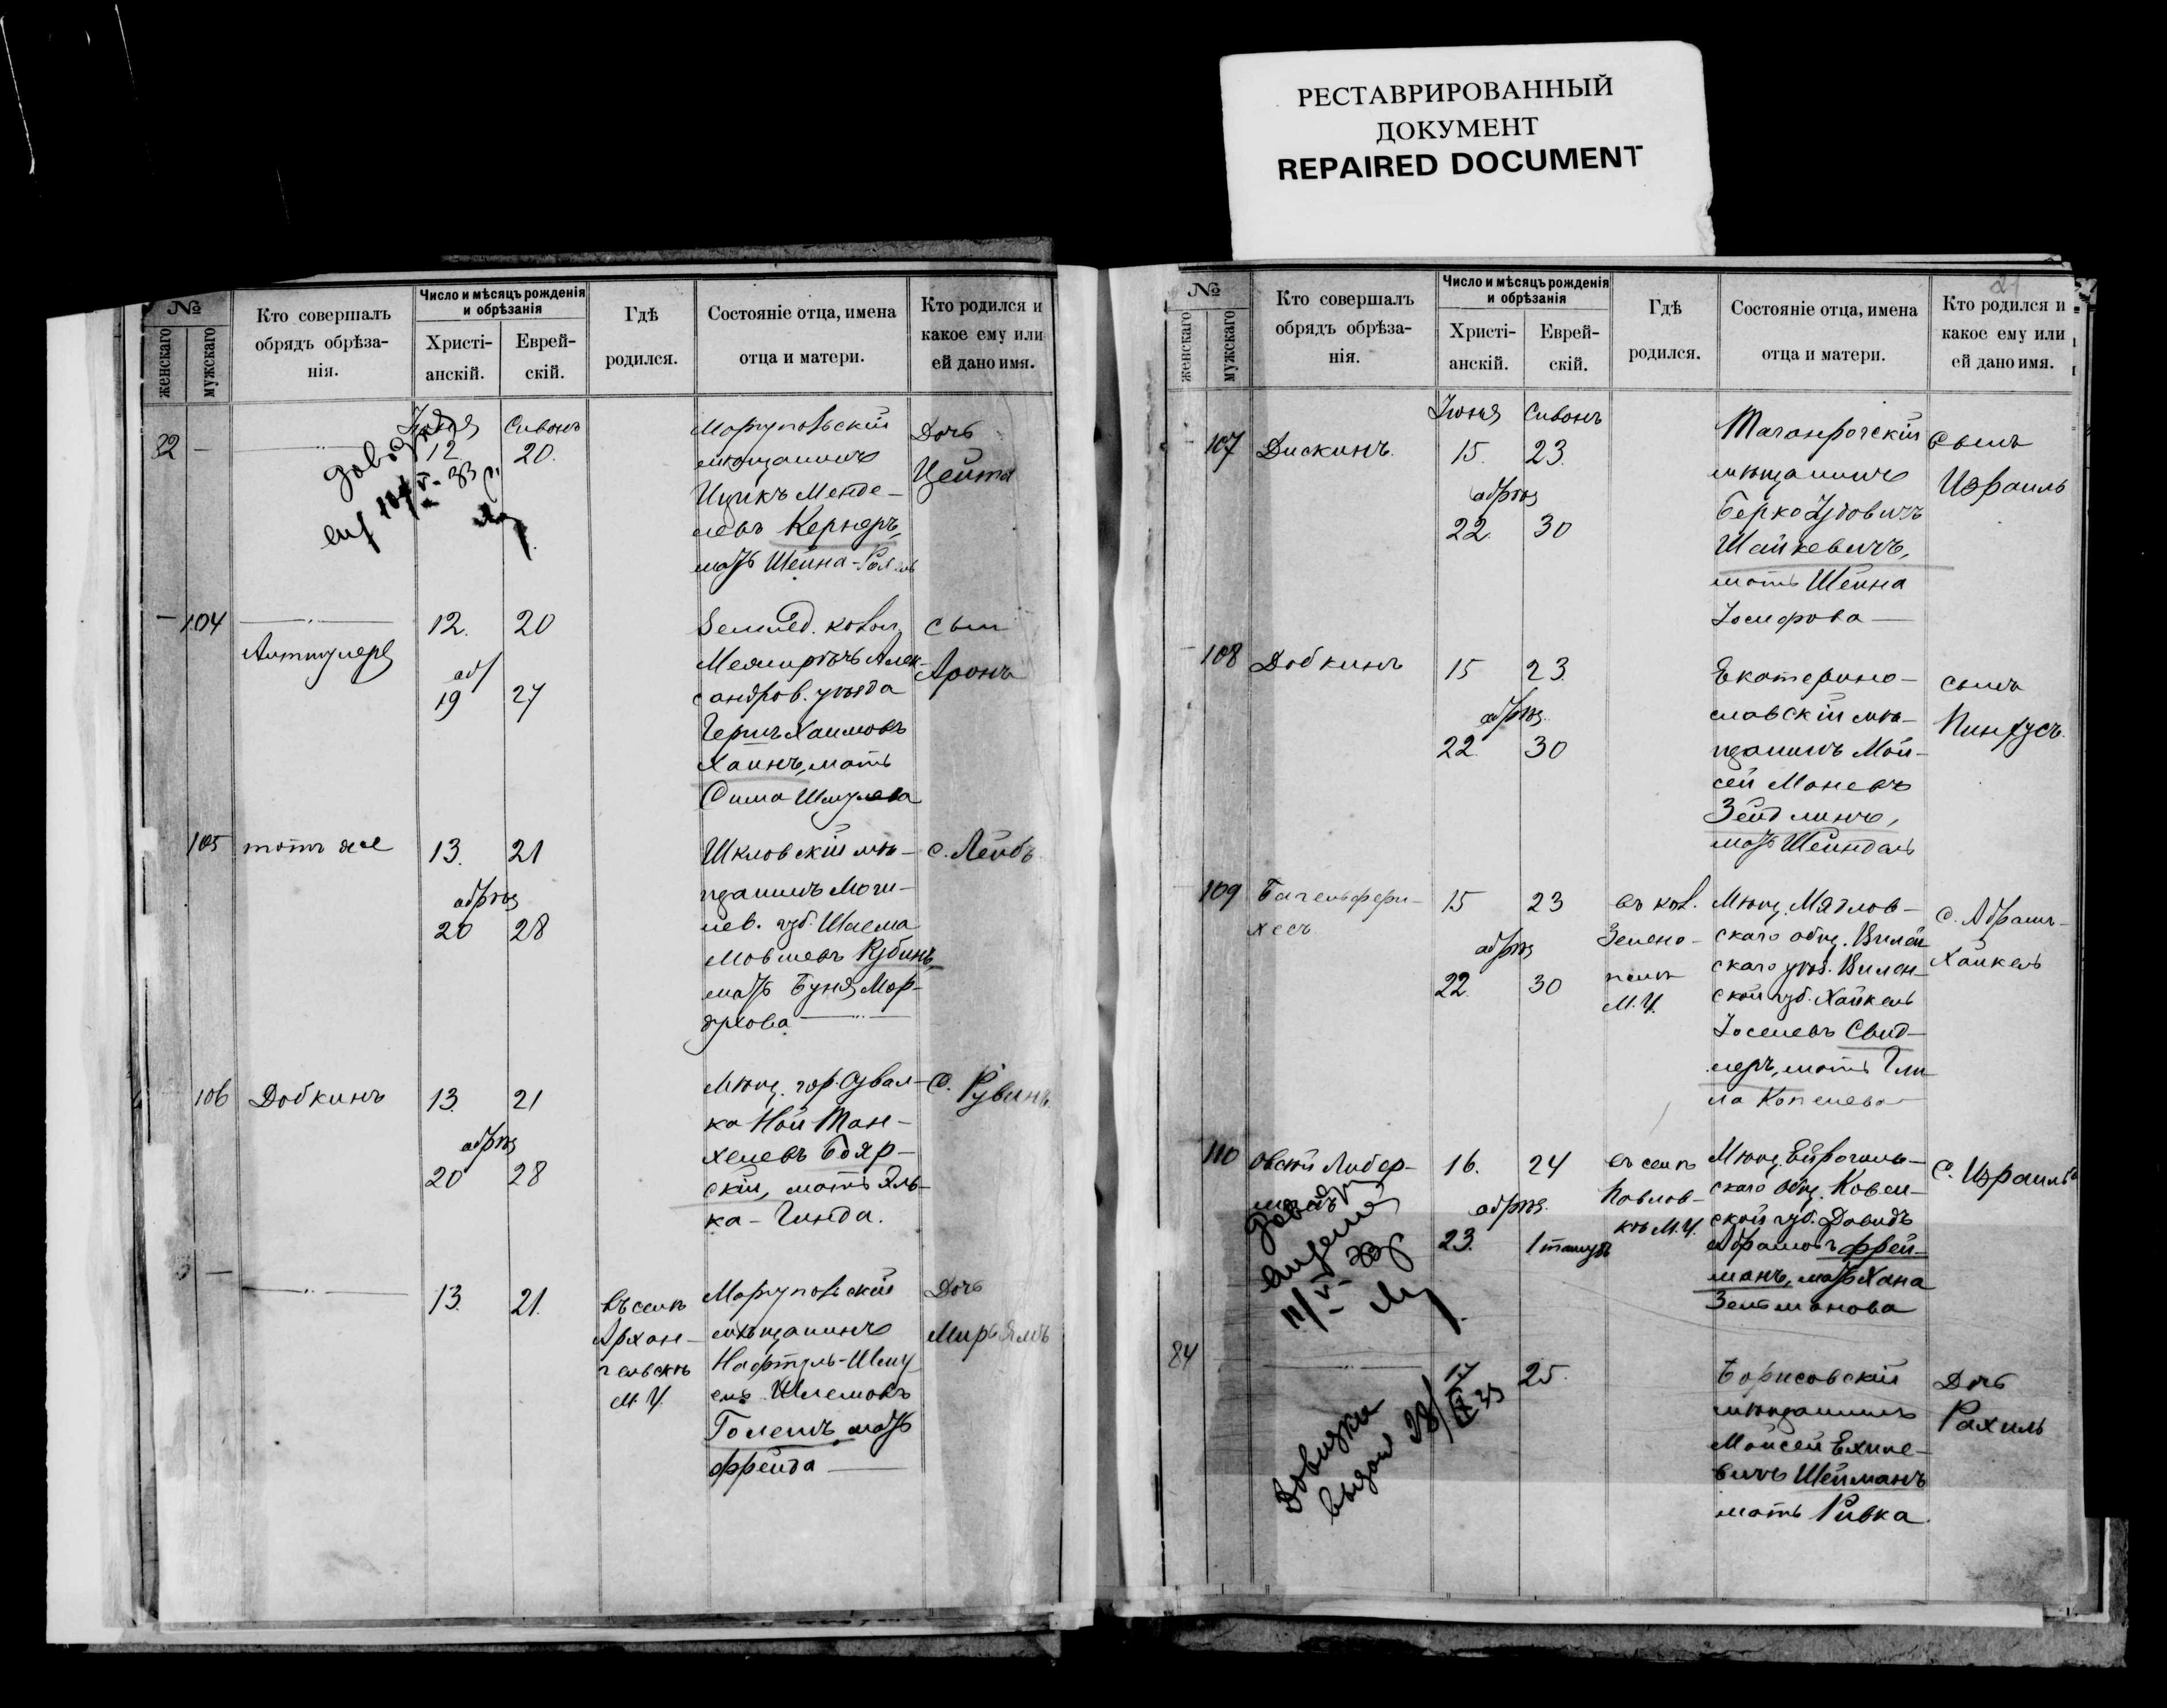 РЕСТАВРИРОВАННЫЙ
ДОКУМЕНТ
REPAIRED DOCUMENT
№
женскаго
мужскаго
Кто совершалъ
обрядъ обрѣза-
нія.
Число и мѣсяцъ рожденія
и обрѣзанія
Христі-
анскій.
Еврей-
скій.
Гдѣ
родился.
Состояніе отца, имена
отца и матери.
Кто родился и
какое ему или
ей дано имя.
Сивонъ
12
20.
Маріупольскій
мѣщанинъ
Ицикъ Менде-
левъ Кернеръ,
мать Шейна-
Дочь
Цейта
104
12.
20
19
27
сандров. уѣзда
Гершъ Хаимовъ
Хаинъ, мать
Сима Шмулева
сын
Аронъ
105
тотъ же
13.
21
обрѣз
20
28
Шкловскій мѣ-
щанинъ Моги-
лев. губ. Шлема
Мовшевъ Рубинъ,
мать Буня Мор-
духова
с. Лейбъ
106
Добкинъ
13.
21
обрѣз
20
28
Мѣщ. гор. Сувал-
ка Ной Тан-
хелевъ Бояр-
скій, мать Эль-
ка - Гинда.
с. Рувинъ
13.
21.
въ селѣ
Архан-
гельскѣ
М. У.
Маріупольскій
мѣщанинъ
Нафтуль-Шму
ель Шлемовъ
Големъ, мать
Фрейда
Дочь
Мирьямъ
№
женскаго
мужскаго
Кто совершалъ
обрядъ обрѣза-
нія.
Число и мѣсяцъ рожденія
и обрѣзанія
Христі-
анскій.
Еврей-
скій.
Гдѣ
родился.
Состояніе отца, имена
отца и матери.
Кто родился и
какое ему или
ей дано имя.
Іюня
Сивонъ
107
Дискинъ.
15.
23.
обрѣз
22.
30
Таганрогскій
мѣщанинъ
Берко Удовичъ
Шайкевичъ,
мать Шейна
Іосифова
сынъ
Израиль
108
Добкинъ
15
23.
обрѣз.
22.
30
Екатерино-
славскій мѣ-
щанинъ Мой-
сей Маневъ
Зейдлинъ,
мать Шейндаль
сынъ
Пинхусъ.
109
15
23
обрѣз
22.
30
въ кол.
Зелено-
полѣ
М. У.
Мѣщ. Мядлов-
скаго общ. Вилей
скаго уѣз. Вилен-
ской губ. Хайкель
Іоселевъ Свид-
леръ, мать Гли
ла Копелева
с. Абрамъ-
Хайкель
110
Овсей Либер-
манъ
16.
24
обрѣз.
23.
1 тамузъ
въ селѣ
Павлов-
кѣ М. У.
Мѣщ. Ейрагиль-
скаго общ. Ковен-
ской губ. Давидъ
Абрамовъ Фрей-
манъ, мать Хана
Зельманова
с. Израиль
84
17
25.
Борисовскій
мѣщанинъ
Мойсей Ехиле-
вичъ Шейманъ
мать Ривка
Дочь
Рахиль